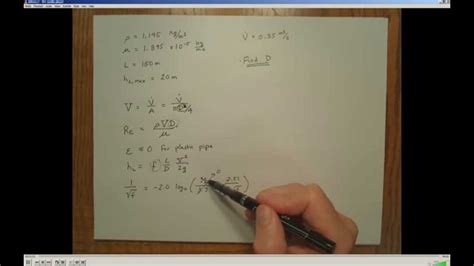 ρ = 1.195 kg/m³
μ = 1.895 × 10⁻⁵ kg/
L = 150 m
h_L,max = 20 m
V̇ = 0.35 m³/s
Find D
V = V̇/A = V̇/(πD²/4)
R_E = ρVD/μ
ε ≈ 0 for plastic pipe
h_L = f L/D V²/2g
1/√f = -2.0 log₁₀ (